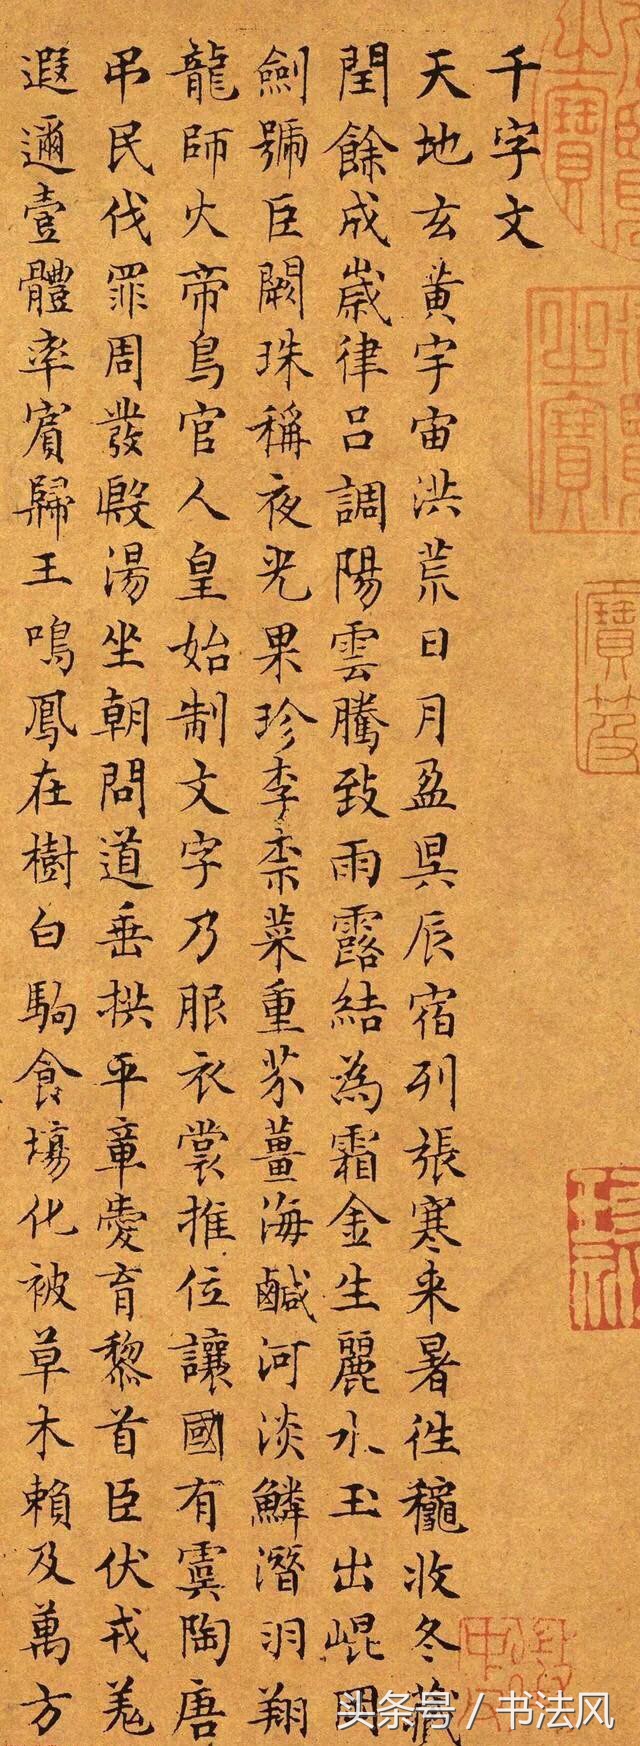 千字文
天地玄黃宇宙洪荒日月盈昃辰宿列張寒来暑往穐收冬藏
閏餘成歲律呂調陽雲騰致雨露結為霜金生麗水玉出崐岡
劍號巨闕珠稱夜光果珍李柰菜重芥薑海鹹河淡鱗潛羽翔
龍師火帝鳥官人皇始制文字乃服衣裳推位讓國有虞陶唐
吊民伐罪周發殷湯坐朝問道垂拱平章愛育黎首臣伏戎羌
遐邇壹體率賓歸王鳴鳳在樹白駒食場化被草木賴及萬方
头条号 / 书法风